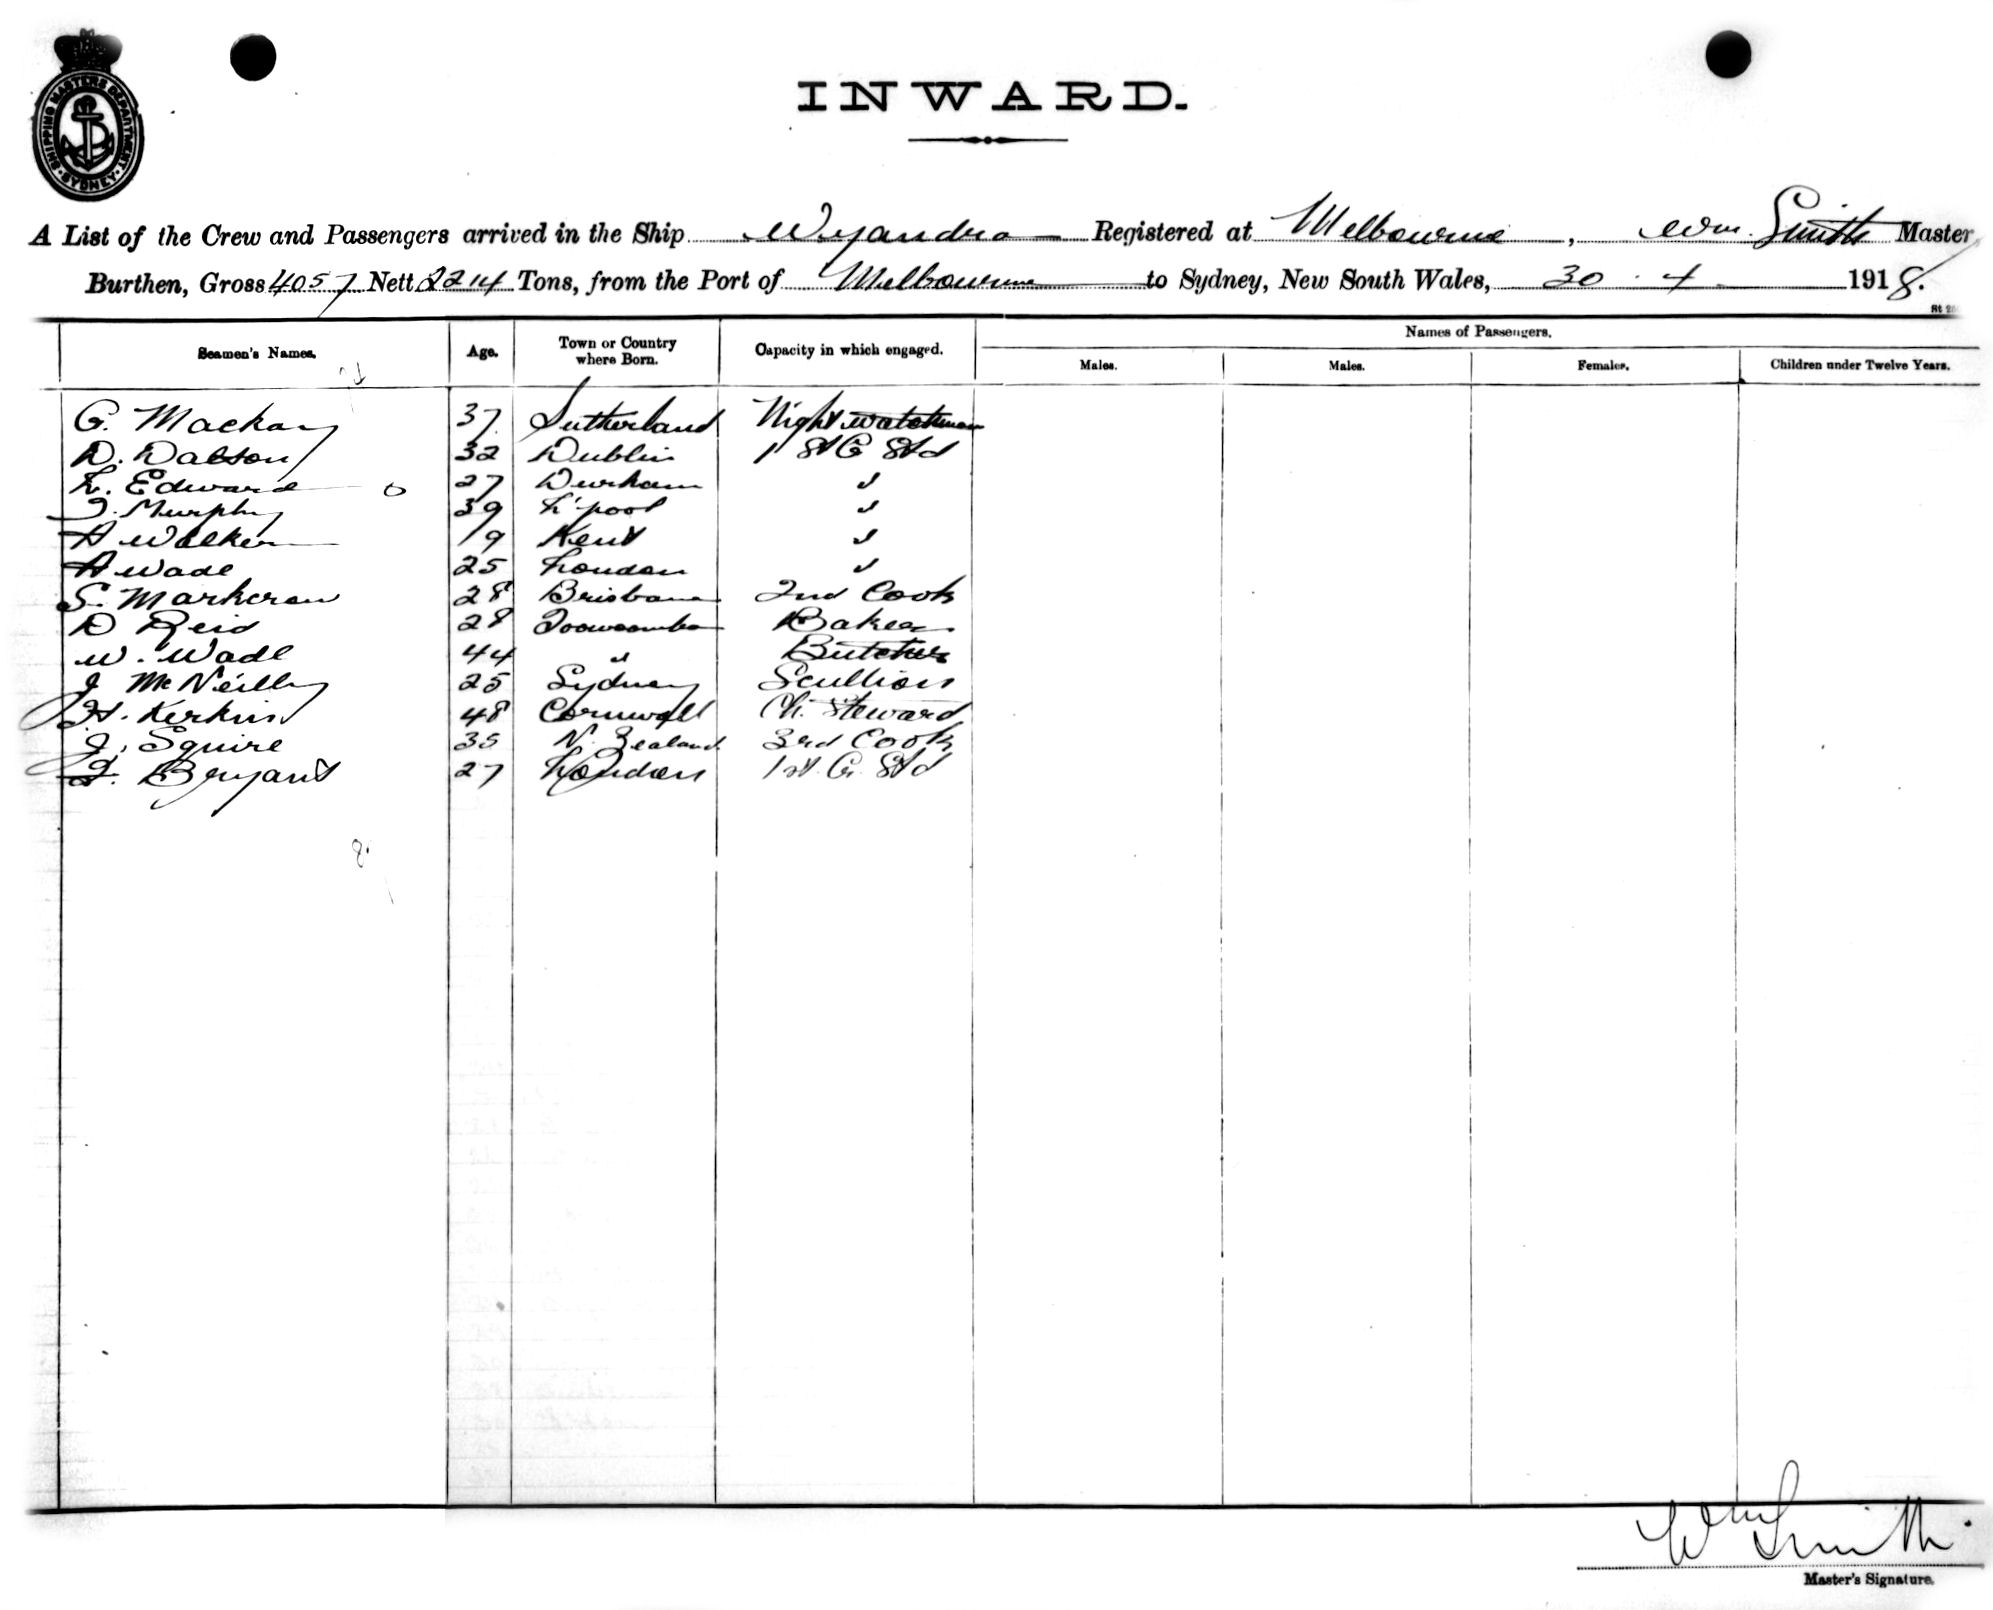 SHIPPING MASTERS DEPARTMENT. SYDNEY.
INWARD.
A List of the Crew and Passengers arrived in the Ship Wyandra Registered at Melbourne, Wm. Smith Master,
Burthen, Gross 4057 Nett 2214 Tons, from the Port of Melbourne to Sydney, New South Wales, 30 . 4 1918.
Seamen's Names. Age. Town or Country where Born. Capacity in which engaged. Names of Passengers.
Males. Males. Females. Children under Twelve Years.
G. Mackay 37 Sutherland Night watchman
D. Dalson 32 Dublin 1st G Std
L. Edward 27 Durham "
J. Murphy 39 L'pool "
A Walker 19 Kent "
A Wade 25 London "
S. 28 Brisbane 2nd Cook
D Reid 28 Toowoomba Baker
W. Wade 44 " Butcher
J McNeilly 25 Sydney Scullion
H. Kerkin 48 Cornwall Ch. Steward
J. Squire 35 N. Zealand 3rd Cook
J. Bryant 27 London 1st. G. Std
Wm Smith
Master's Signature.